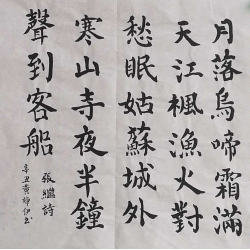 月落烏啼霜滿
天江楓漁火對
愁眠姑蘇城外
寒山寺夜半鐘
聲到客船
張繼詩
辛丑